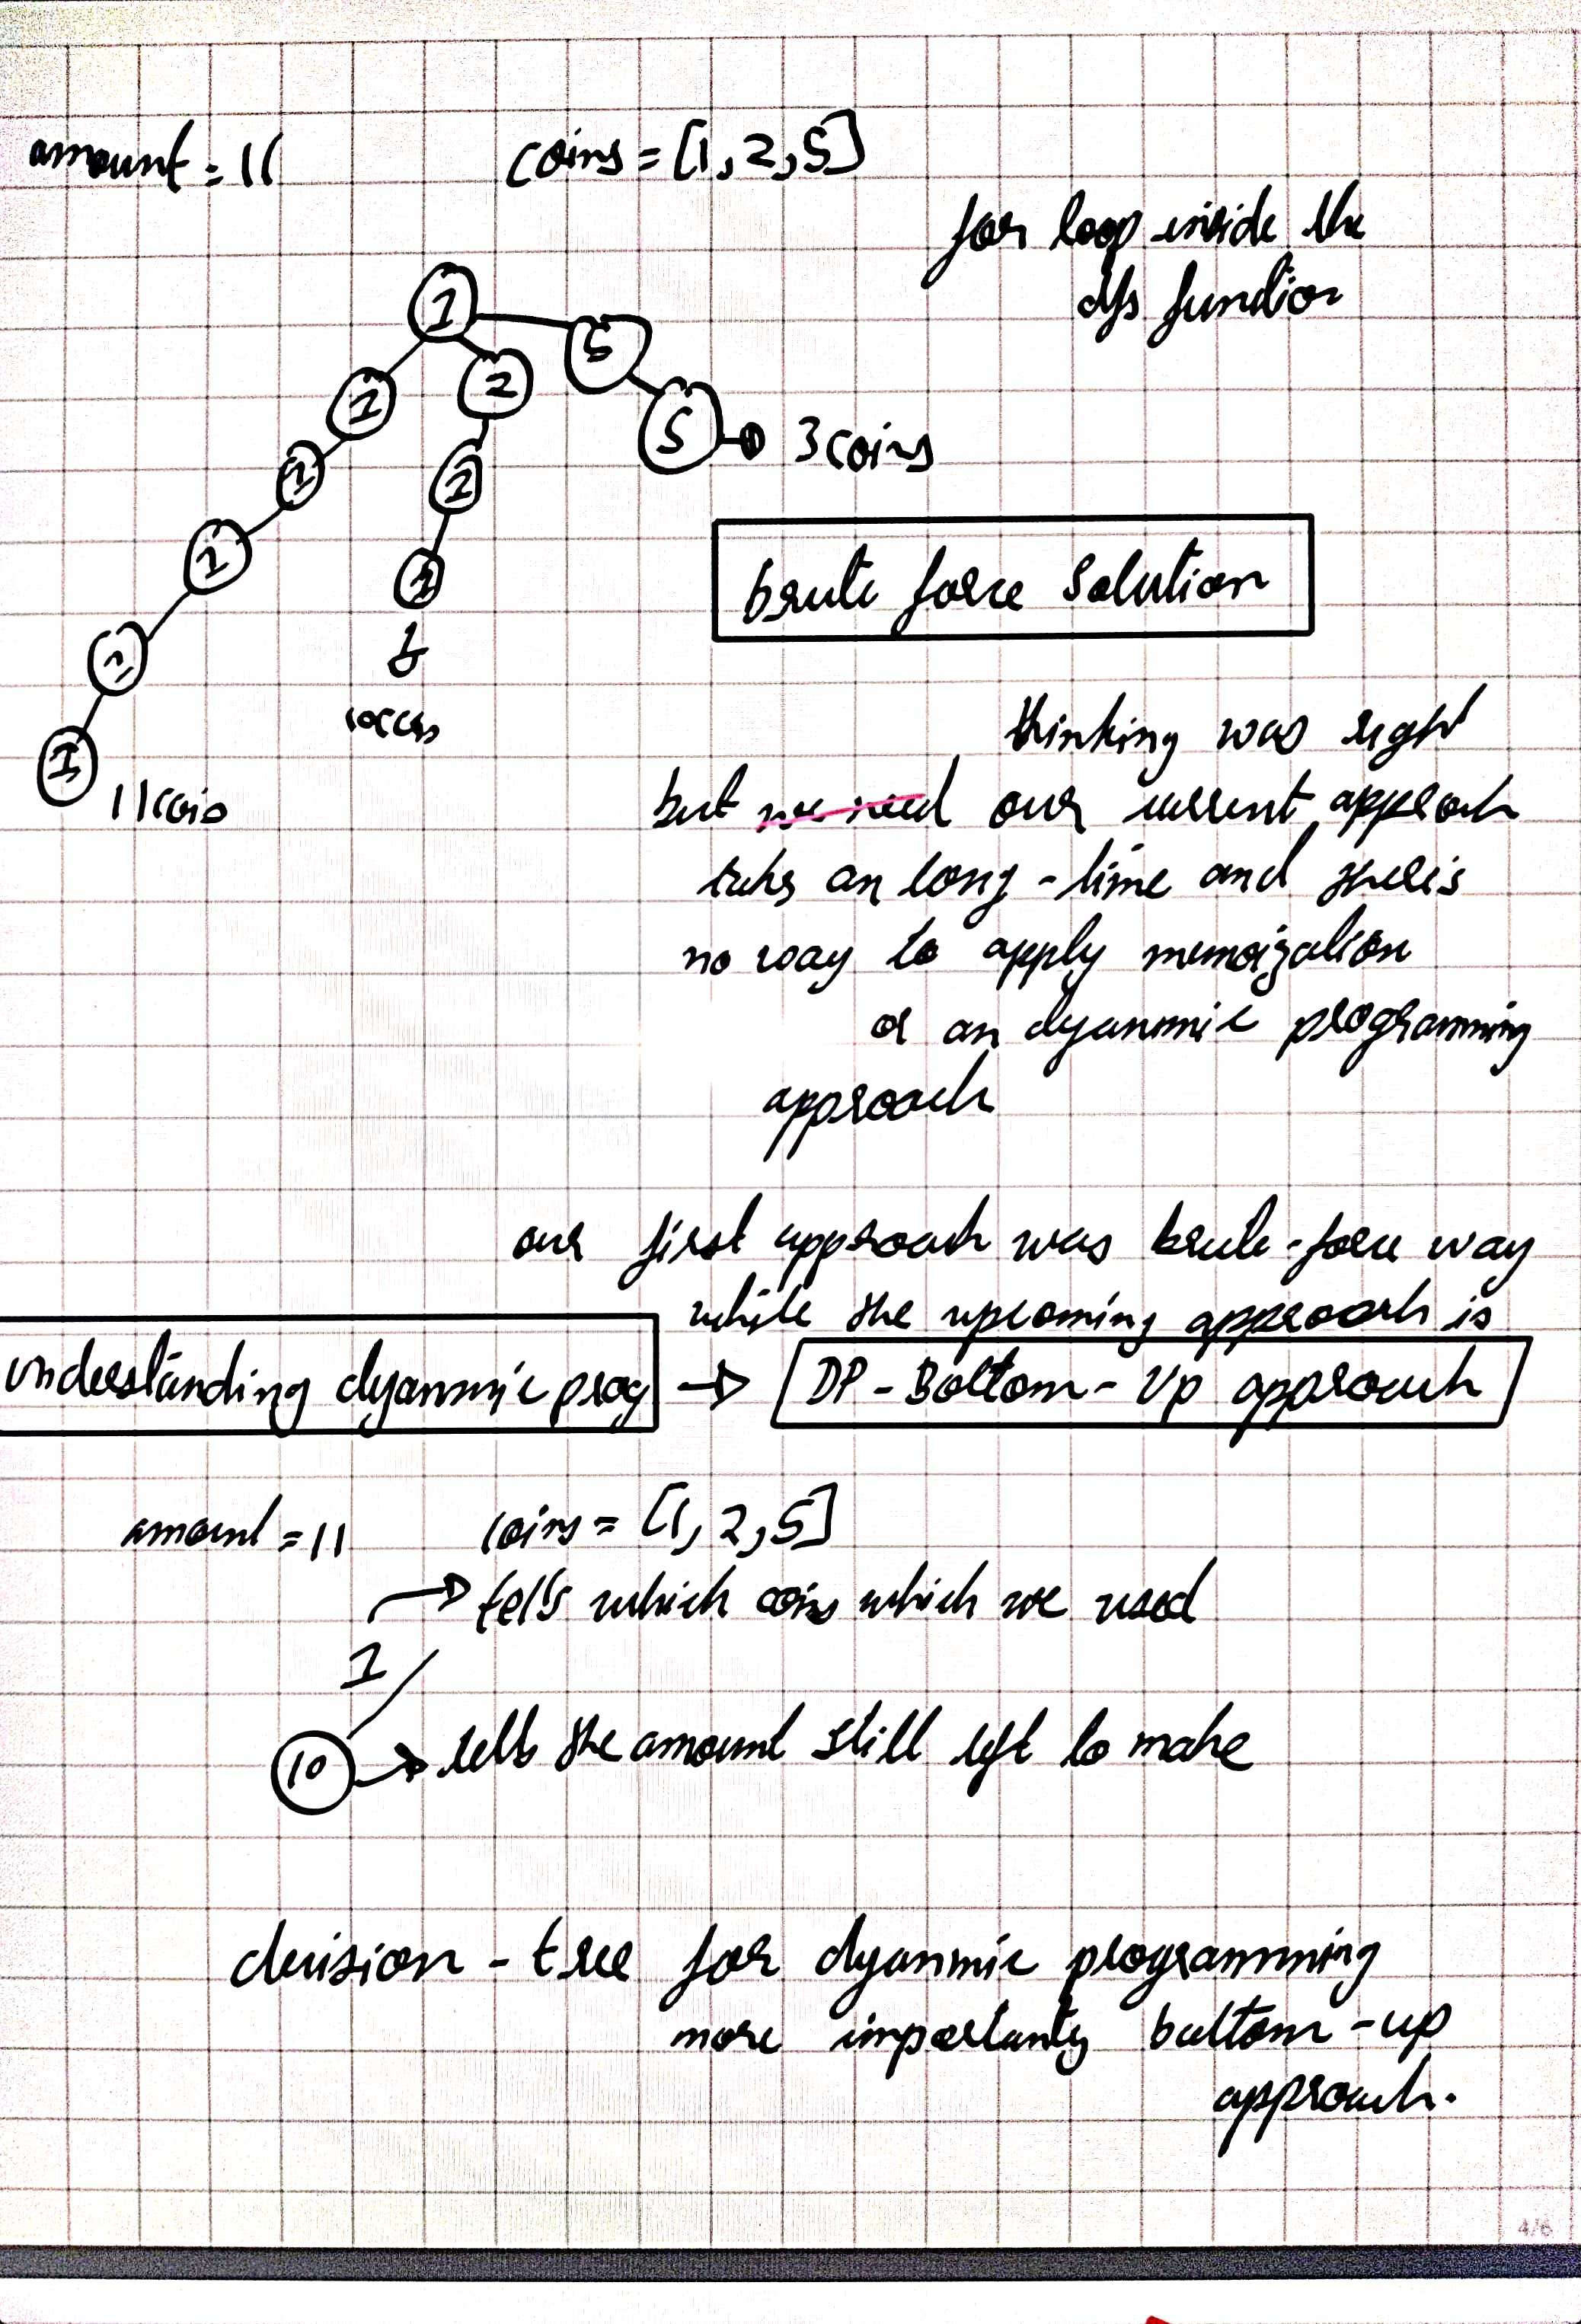 amount = 11
coins = [1, 2, 5]
for loop inside the
dfs function
1
5
1
2
5
3 coins
1
2
1
2
brute force solution
1
1
thinking was right
11 coins
but we need our current approach
takes an long - time and theris
no way to apply memoization
or an dyanmic programming
approach
our first approach was brute - force way
while the upcoming approach is
understanding dyanmic prog → DP - Bottom - Up approach
amount = 11 coins = [1, 2, 5]
→ tells which coins which we used
1
10 → tells the amount still left to make
decision - tree for dyanmic programming
more importanty bottom - up
approach.
4/6